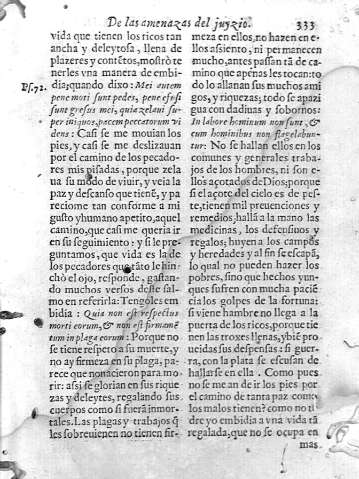 De las amenazas del juyzio. 333
vida que tienen los ricos tan
ancha y deleytosa, llena de
plazeres y contẽtos, mostrò te
nerles vna manera de embi-
dia; quando dixo: Mei autem
Ps. 72.
pene moti sunt pedes, pene effusi
sunt gressus mei, quia zelaui su-
per iniquos, pacem peccatorum vi
dens: Casi se me mouian los
pies, y casi se me deslizauan
por el camino de los pecado-
res mis pisadas, porque zela
ua su modo de viuir, y veia la
paz y descanso que tienẽ, y pa
recione tan conforme a mi
gusto y humano apetito, aquel
camino, que casi me queria ir
en su seguimiento: y si le pre-
guntamos, que vida es la de
los pecadores que tãto le hin-
chò el ojo, responde, gastan-
do muchos versos deste sal-
mo en referirla: Tengoles em
bidia: Quia non est respectus
morti eorum, & non est firmamẽ
tum in plaga eorum: Porque no
se tiene respeto a su muerte, y
no ay firmeza en su plaga, pa-
rece que no nacieron para mo-
rir: assi se glorian en sus rique
zas y deleytes, regalando sus
cuerpos como si fuerã inmor-
tales. Las plagas y trabajos q̃
les sobreuienen no tienen fir-
meza en ellos, no hazen en e-
llos assiento, ni permanecen
mucho, antes passan tã de ca-
mino que apénas les tocan: to
do lo allanan sus muchos ami
gos, y riquezas; todo se apazi
gua con dadiuas y sobornos:
In labore hominum non sunt, &
cum hominibus non flagelabun-
tur: No se hallan ellos en los
comunes y generales traba-
jos de los hombres, ni son e-
llos açotados de Dios; porque
si el açote del cielo es de pes-
te, tienen mil preuenciones y
remedios, hallã a la mano las
medicinas, los defensiuos y
regalos; huyen a los campos
y heredades y al fin se escapã,
lo qual no pueden hazer los
pobres, sino que hechos yun-
ques sufren con mucha pacié
cia los golpes de la fortuna:
si viene hambre no llega a la
puerta de los ricos, porque tie
nen las troxes llenas, y biẽ pro
ueidas sus despensas: si guer-
ra, con la plata se escusan de
hallarse en ella. Como pues
no se me an de ir los pies por
el camino de tanta paz como
los malos tienen? como no ti
dre yo embidia a vna vida tã
regalada, que no se ocupa en
mas